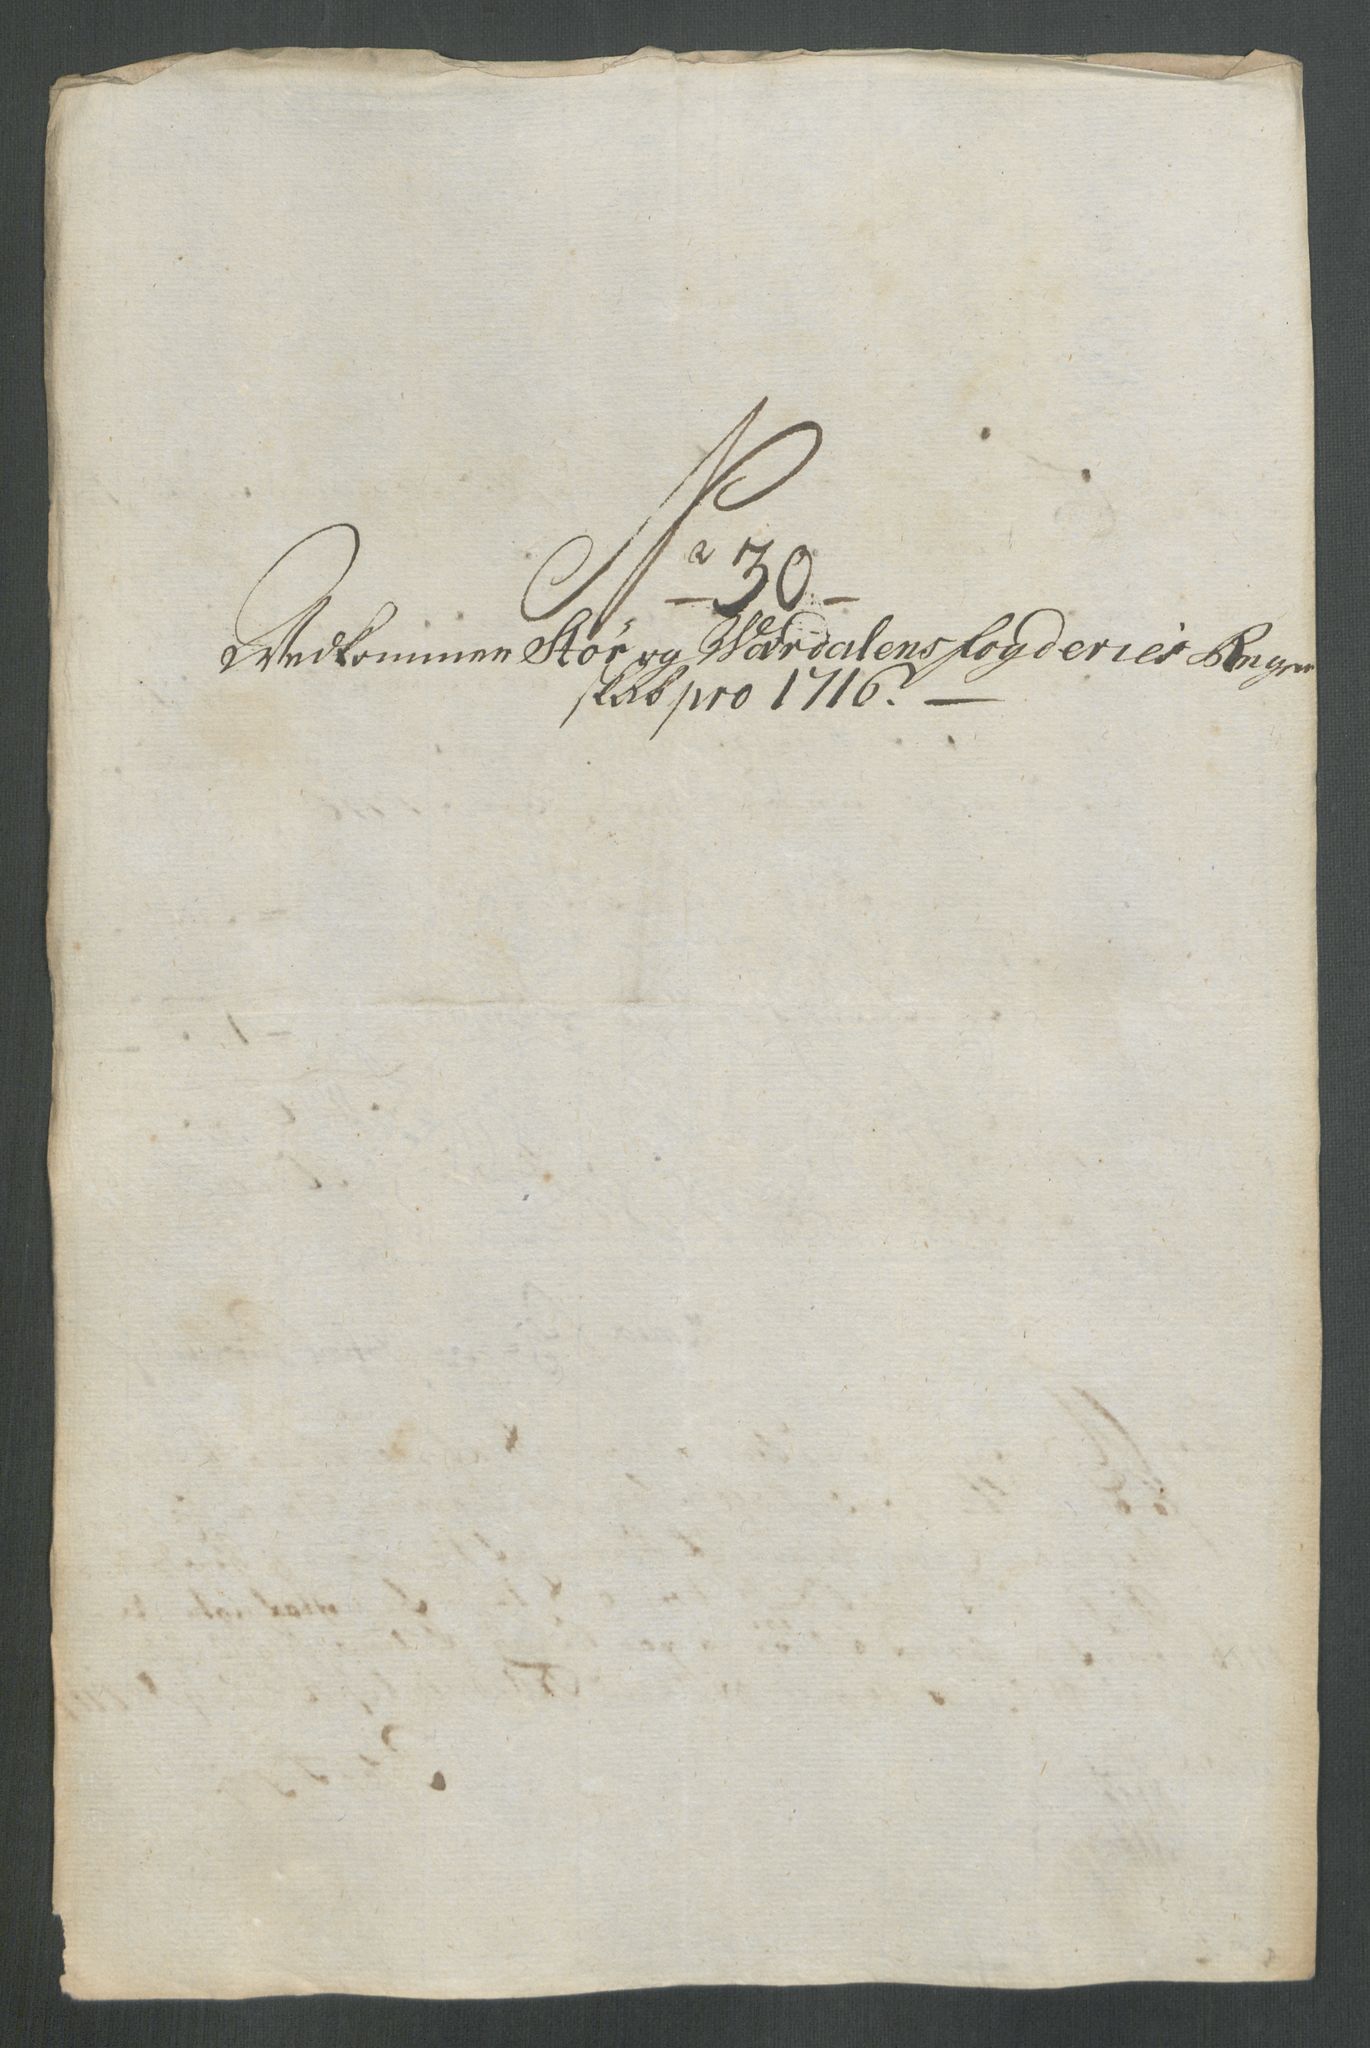 No 30
Vedkommer Stør og Værdalens fogderies Regen
skab pro 1716.